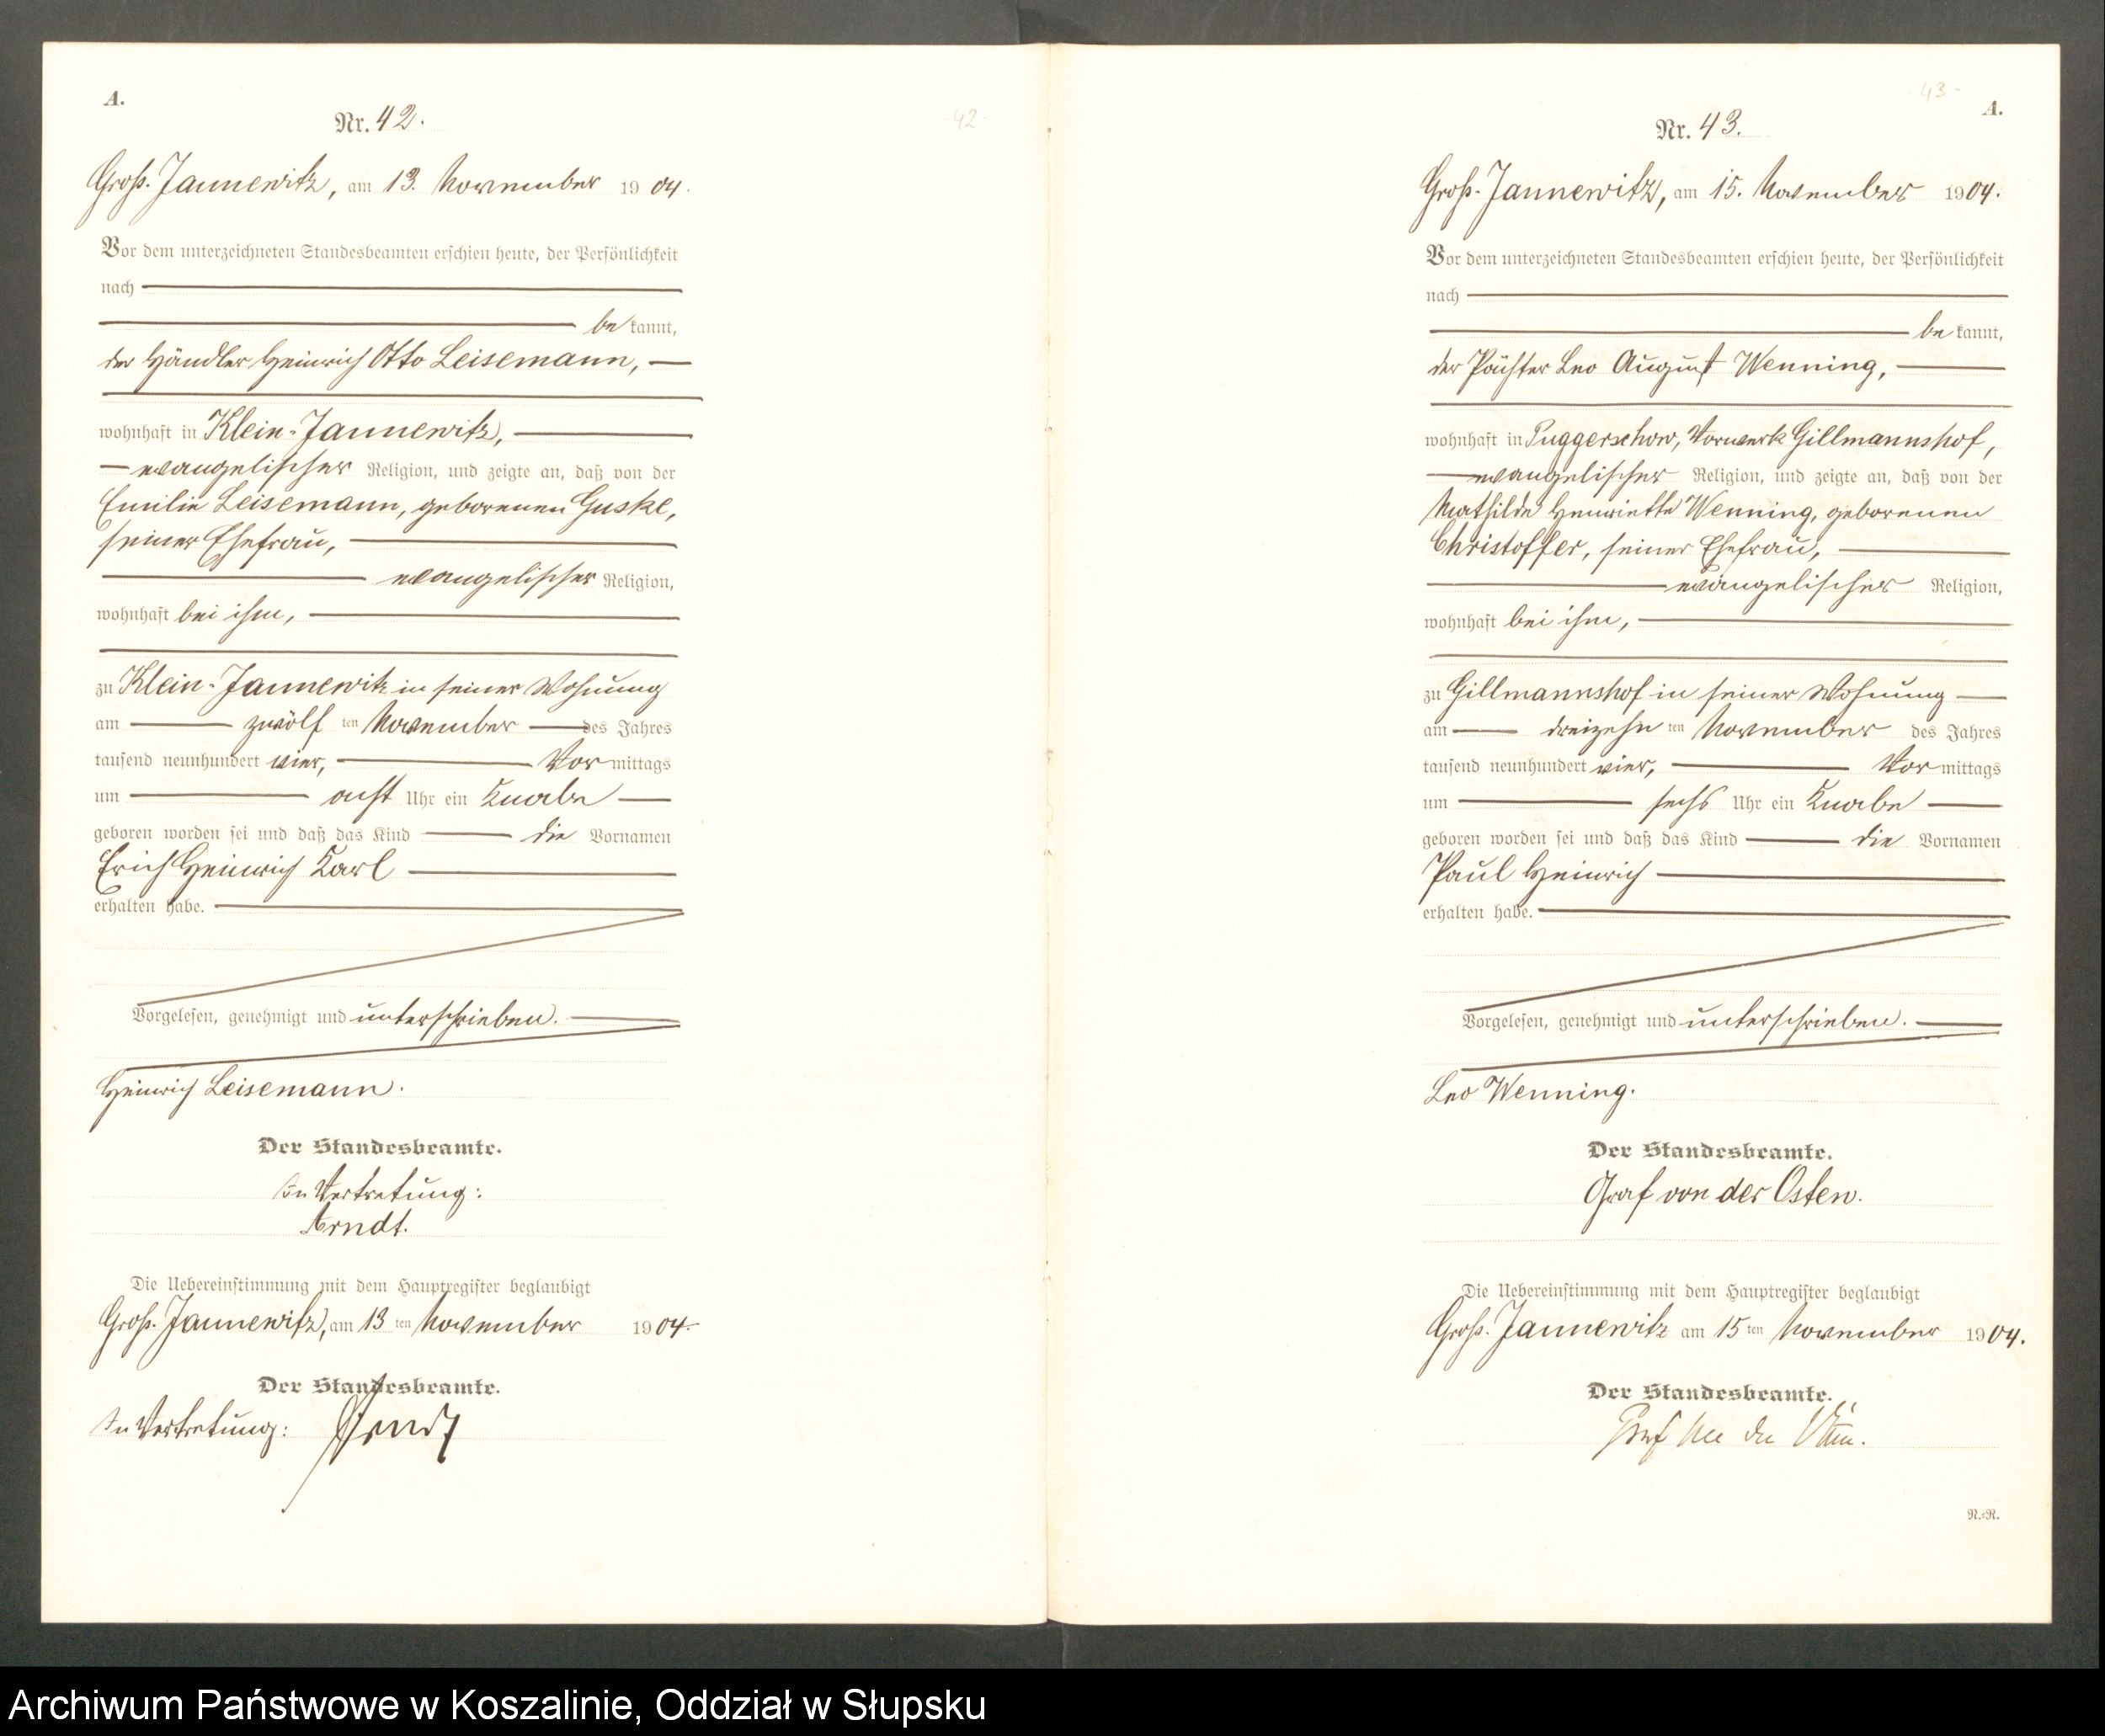 A.
Nr. 42.
42-
Groß-Jannewitz, am 13. November 1904.
Vor dem unterzeichneten Standesbeamten erschien heute, der Persönlichkeit
nach
be kannt,
der Händler Heinrich Otto Leisemann,
wohnhaft in Klein-Jannewitz,
evangelischer Religion, und zeigte an, daß von der
Emilie Leisemann, geborenen Guske,
seiner Ehefrau,
evangelischer Religion,
wohnhaft bei ihm,
zu Klein-Jannewitz in seiner Wohnung
am zwölf ten November des Jahres
tausend neunhundert vier, Vor mittags
um acht Uhr ein Knabe
geboren worden sei und daß das Kind die Vornamen
Erich Heinrich Karl
erhalten habe.
Vorgelesen, genehmigt und unterschrieben.
Heinrich Leisemann.
Der Standesbeamte.
In Vertretung:
Arndt.
Die Uebereinstimmung mit dem Hauptregister beglaubigt
Groß-Jannewitz, am 13 ten November 1904.
Der Standesbeamte.
In Vertretung: Arndt
43-
A.
Nr. 43.
Groß-Jannewitz, am 15. November 1904.
Vor dem unterzeichneten Standesbeamten erschien heute, der Persönlichkeit
nach
be kannt,
der Pächter Leo August Wenning,
wohnhaft in Puggerschow, Vorwerk Gillmannshof,
evangelischer Religion, und zeigte an, daß von der
Mathilde Henriette Wenning, geborenen
Christoffer, seiner Ehefrau,
evangelischer Religion,
wohnhaft bei ihm,
zu Gillmannshof in seiner Wohnung
am dreizehn ten November des Jahres
tausend neunhundert vier, Vor mittags
um sechs Uhr ein Knabe
geboren worden sei und daß das Kind die Vornamen
Paul Heinrich
erhalten habe.
Vorgelesen, genehmigt und unterschrieben.
Leo Wenning.
Der Standesbeamte.
Graf von der Osten.
Die Uebereinstimmung mit dem Hauptregister beglaubigt
Groß-Jannewitz am 15 ten November 1904.
Der Standesbeamte.
Graf von der Osten.
N.=R.
Archiwum Państwowe w Koszalinie, Oddział w Słupsku